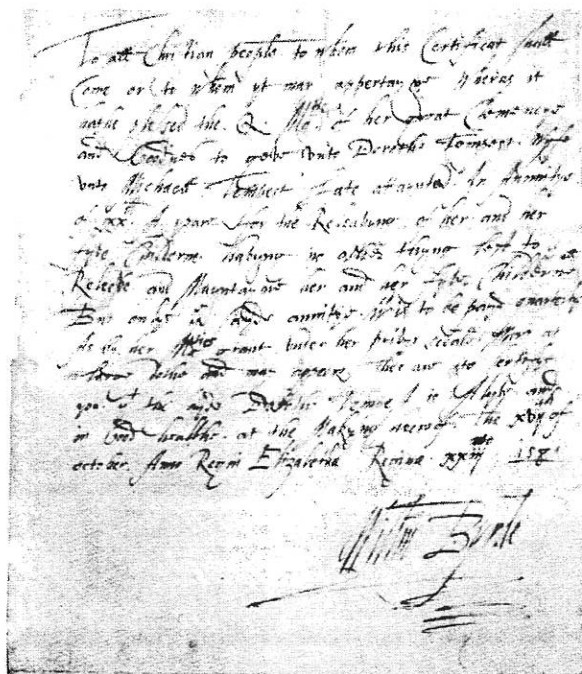 To all Christian people to whom this Certificat shall
Come or to whom yt may appertayne Wheras it
hathe plesed the Q. Ma^ties of her great Clemencye
and Goodnes to geve unto Dorothe Tempest Wyfe
unto Michaell Tempest Late attaynted An Annuitye
of xx^li A yeare for the Releavung of her and her
fyve Children havung no other thyng left to
Releve and Mayntayne her and her fyve Children
But onlye ye sayd annuitye W^ch is to be payd
by her Ma^ties grant under her privy seale
and may appere These are to certefye
you yt the sayd Dorothe is Alyve and
in Good healthe at the makyng heerof The xvij^th of
october Anno Regni Elizabethe Regine xxiij^tio 1581